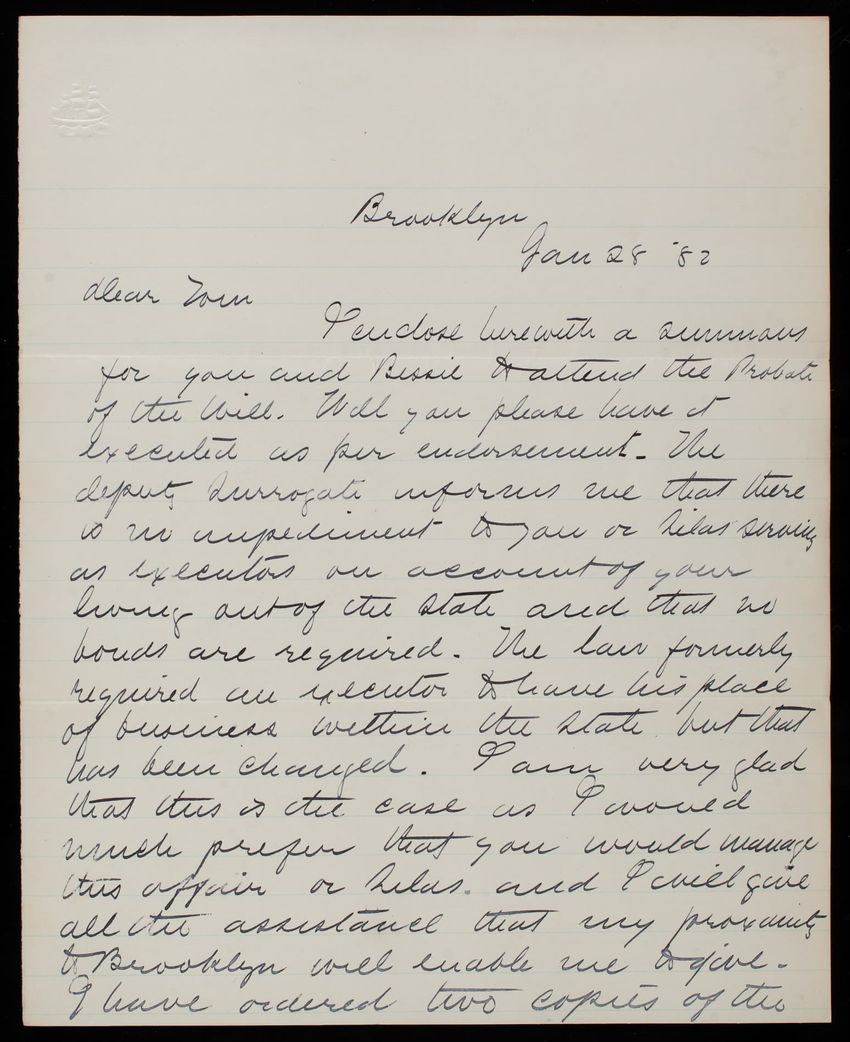 Brooklyn
Jan 28 '82
dear Tom
I enclose herewith a summons
for you and Bessie to attend the Probate
of the Will. Will you please have it
executed as per endorsement. The
deputy Surrogate informs me that there
is no impediment to you or Silas serving
as executors on account of your
living out of the State and that no
bonds are required. The law formerly
required an executor to have his place
of business within the State but that
has been changed. I am very glad
that this is the case as I would
much prefer that you would manage
this affair or Silas. and I will give
all the assistance that my proximity
to Brooklyn will enable me to give.
I have ordered two copies of the